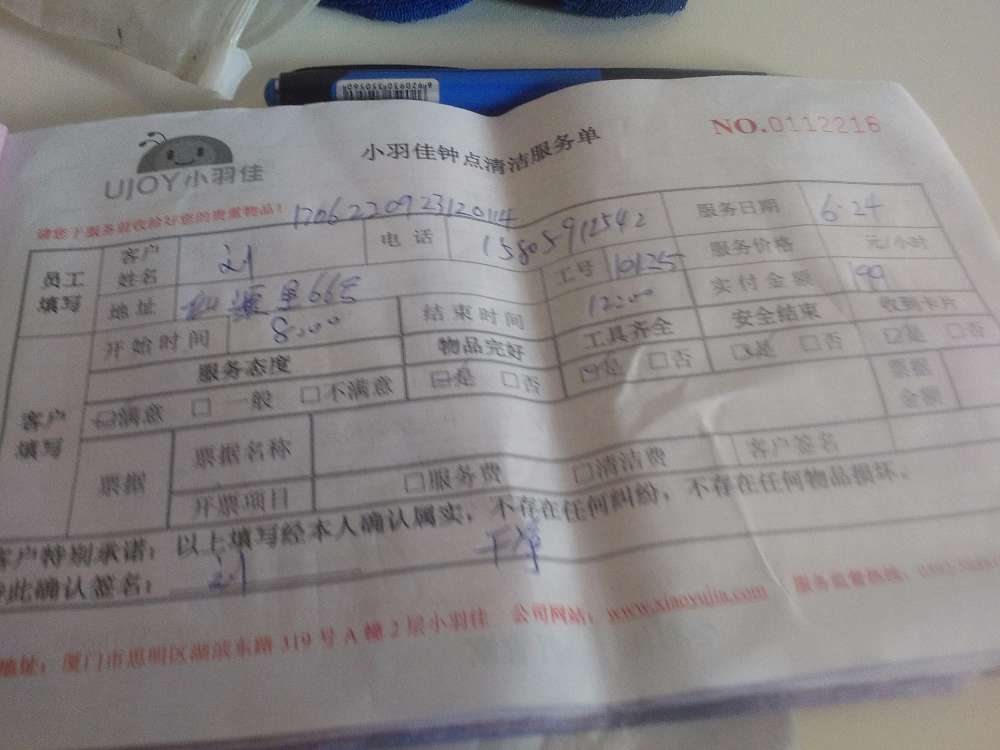 UJOY小羽佳
小羽佳钟点清洁服务单
NO.0112216
请您于服务前收拾好您的贵重物品!
170622092312014
员工填写
客户姓名 刘
电话 15805912542
服务日期 6.24
地址 源里66号
工号 10125
服务价格 元/小时
开始时间 8:00
结束时间 12:00
实付金额 199
客户填写
服务态度
物品完好
工具齐全
安全结束
收到卡片
满意 一般 不满意
是 否
是 否
是 否
是 否
票据
票据名称
票据金额
开票项目
服务费 清洁费
客户签名
客户特别承诺:以上填写经本人确认属实,不存在任何纠纷,不存在任何物品损坏。
特此确认签名: 刘 干净
地址:厦门市思明区湖滨东路319号A幢2层小羽佳 公司网站:www.xiaoyujia.com 服务监督热线: